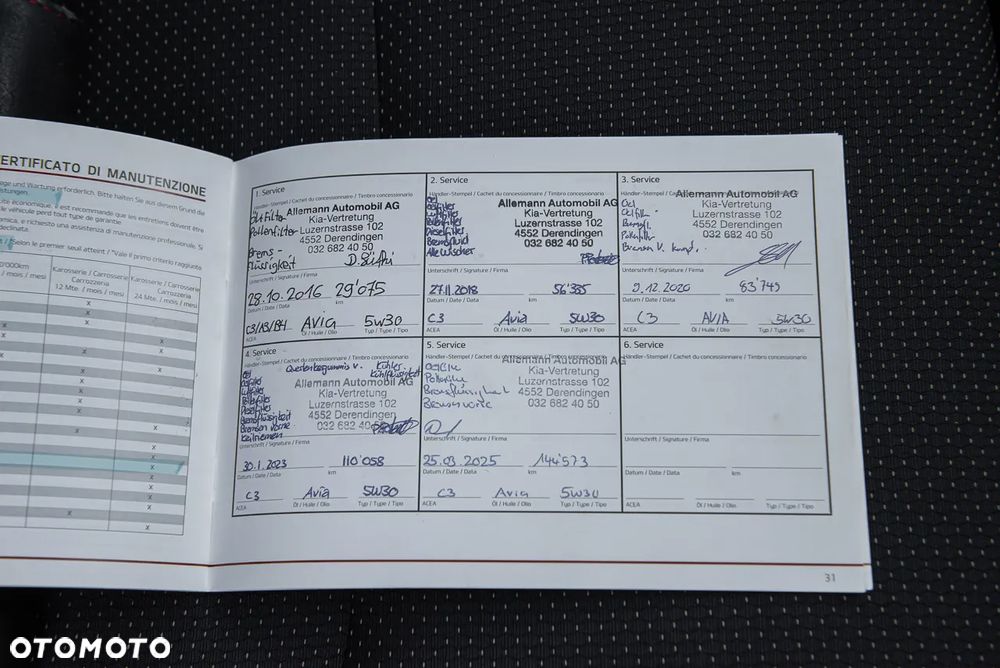 CERTIFICATO DI MANUTENZIONE
ege und Wartung erforderlich. Bitte halten Sie aus diesem Grund die
istungen.
Selon le premier seuil atteint / *Vale il primo criterio raggiunto
Karosserie / Carrosserie
Carrozzeria
12 Mte. / mois / mesi
Karosserie / Carrosserie
Carrozzeria
24 Mte. / mois / mesi
1. Service
Händler-Stempel / Cachet du concessionnaire / Timbro concessionario
Ölfilter
Pollenfilter
Brems-
flüssigkeit
Allemann Automobil AG
Kia-Vertretung
Luzernstrasse 102
4552 Derendingen
032 682 40 50
Unterschrift / Signature / Firma
28.10.2016 29'075
Datum / Date / Data km
C3/A3/B4 Avia 5W30
ACEA Öl / Huile / Olio Typ / Type / Tipo
2. Service
Händler-Stempel / Cachet du concessionnaire / Timbro concessionario
Öl
Ölfilter
Luftfilter
Pollenfilter
Dieselfilter
Bremsfluid
Alle Wischer
Allemann Automobil AG
Kia-Vertretung
Luzernstrasse 102
4552 Derendingen
032 682 40 50
Unterschrift / Signature / Firma
27.11.2018 56'385
Datum / Date / Data km
C3 Avia 5W30
ACEA Öl / Huile / Olio Typ / Type / Tipo
3. Service
Händler-Stempel / Cachet du concessionnaire / Timbro concessionario
Öel
Oelfilter
Bremsfl.
Bremsen V. kompl.
Allemann Automobil AG
Kia-Vertretung
Luzernstrasse 102
4552 Derendingen
032 682 40 50
Unterschrift / Signature / Firma
9.12.2020 83'749
Datum / Date / Data km
C3 AVIA 5W30
ACEA Öl / Huile / Olio Typ / Type / Tipo
4. Service
Händler-Stempel / Cachet du concessionnaire / Timbro concessionario
Kühler
Kühlflüssigkeit
Öl
Ölfilter
Luftfilter
Pollenfilter
Dieselfilter
Bremsflüssigkeit
Bremsen vorne
Keilriemen
Allemann Automobil AG
Kia-Vertretung
Luzernstrasse 102
4552 Derendingen
032 682 40
Unterschrift / Signature / Firma
30.1.2023 110'058
Datum / Date / Data km
C3 Avia 5W30
ACEA Öl / Huile / Olio Typ / Type / Tipo
5. Service
Händler-Stempel / Cachet du concessionnaire / Timbro concessionario
Bremsflüssigkeit
Bremsen vorne
Allemann Automobil AG
Kia-Vertretung
Luzernstrasse 102
4552 Derendingen
032 682 40 50
Unterschrift / Signature / Firma
25.03.2025 144'573
Datum / Date / Data km
C3 Avia 5W30
ACEA Öl / Huile / Olio Typ / Type / Tipo
6. Service
Händler-Stempel / Cachet du concessionnaire / Timbro concessionario
Unterschrift / Signature / Firma
Datum / Date / Data km
ACEA Öl / Huile / Olio Typ / Type / Tipo
31
OTOMOTO